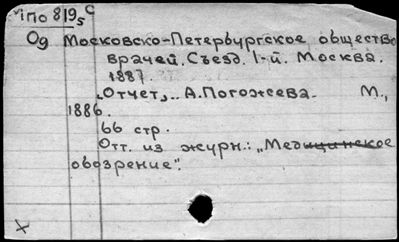 iпо 819₅ с
Од Московско-Петербургское общество
врачей. Съезд. I-й. Москва.
1887.
„Отчет„.. А. Погожева. М.,
1886.
66 стр.
Отт. из журн.: „Медицинское
обозрение".
X